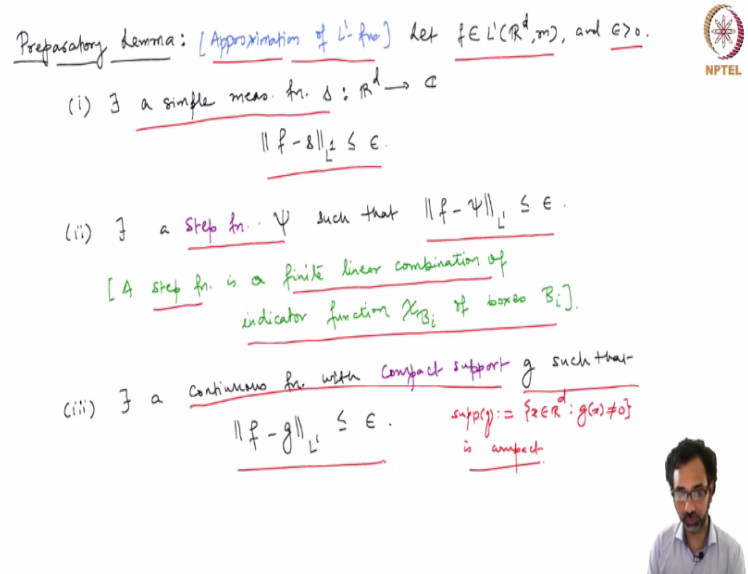 Preparatory Lemma: [Approximation of L¹-fns] Let f ∈ L¹(ℝᵈ, m), and ε > 0.
NPTEL
(i) ∃ a simple meas. fn. s : ℝᵈ → ℂ
‖f - s‖_{L¹} ≤ ε.
(ii) ∃ a step fn. ψ such that ‖f - ψ‖_{L¹} ≤ ε.
[A step fn. is a finite linear combination of
indicator function χ_{B_i} of boxes B_i].
(iii) ∃ a continuous fn. with compact support g such that
‖f - g‖_{L¹} ≤ ε.
supp(g) := {x ∈ ℝᵈ : g(x) ≠ 0}
is compact.